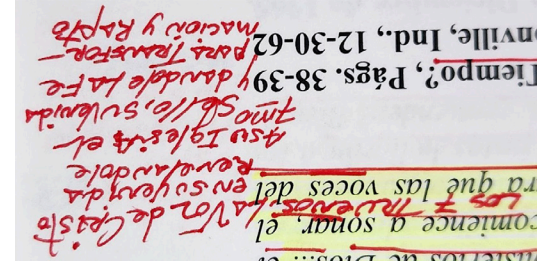 de Dios... el
comience a sonar, el
LOS 7 TRUENOS
que las voces del
Tiempo?, Págs. 38-39
onville, Ind., 12-30-62
La Voz de Cristo
en su venida
Revelandole
A su Iglesia el
7mo Sello, su venida
y dandole La Fe
para TRANSFOR-
macion y Rapto